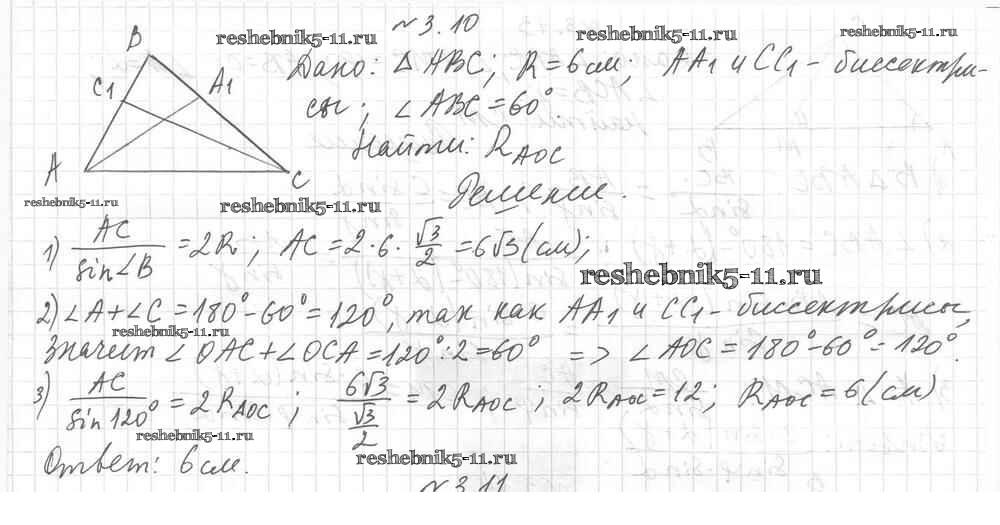 № 3.10
reshebnik5-11.ru reshebnik5-11.ru reshebnik5-11.ru
B
C1 A1
A C
Дано: △ ABC; R = 6 см; AA1 и CC1 - биссектри-
сы; ∠ ABC = 60°
Найти: R_AOC
Решение.
reshebnik5-11.ru reshebnik5-11.ru
1) AC / sin∠B = 2R; AC = 2·6·√3/2 = 6√3 (см);
reshebnik5-11.ru
2) ∠A + ∠C = 180° - 60° = 120°, так как AA1 и CC1 - биссектрисы,
reshebnik5-11.ru
значит ∠OAC + ∠OCA = 120° : 2 = 60° => ∠AOC = 180° - 60° = 120°.
3) AC / sin 120° = 2R_AOC; 6√3 / (√3/2) = 2R_AOC; 2R_AOC = 12; R_AOC = 6 (см)
reshebnik5-11.ru
Ответ: 6 см.
reshebnik5-11.ru
№ 3.11